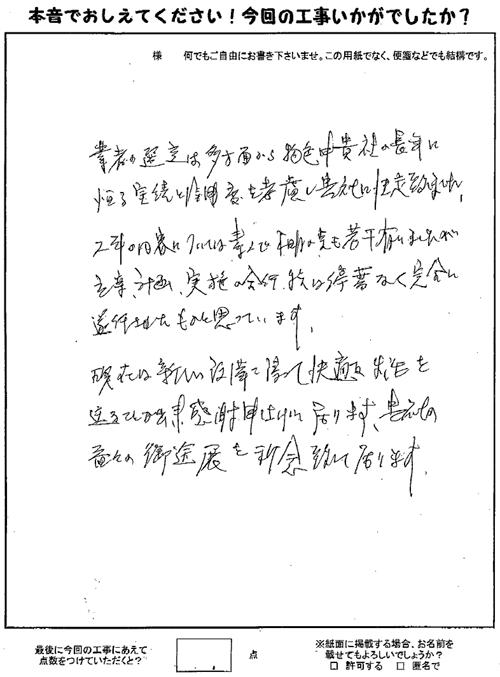 本音でおしえてください!今回の工事いかがでしたか?
様 何でもご自由にお書き下さいませ。この用紙でなく、便箋などでも結構です。
業者の選定は多方面から物色中貴社の長年に
恒る実績と を考慮し貴社に決定致しました。
工事の内容については素人で不明な点も若干有りましたが
立案、計画、実施の 停帯なく完全に
遂行されたものと思っています。
現在は新しい設備で 快適な生活を
送る事が出来感謝申上げて居ります。貴社の
益々の御発展を祈念致して居ります。
最後に今回の工事にあえて
点数をつけていただくと?
点
※紙面に掲載する場合、お名前を
載せてもよろしいでしょうか?
□ 許可する □ 匿名で